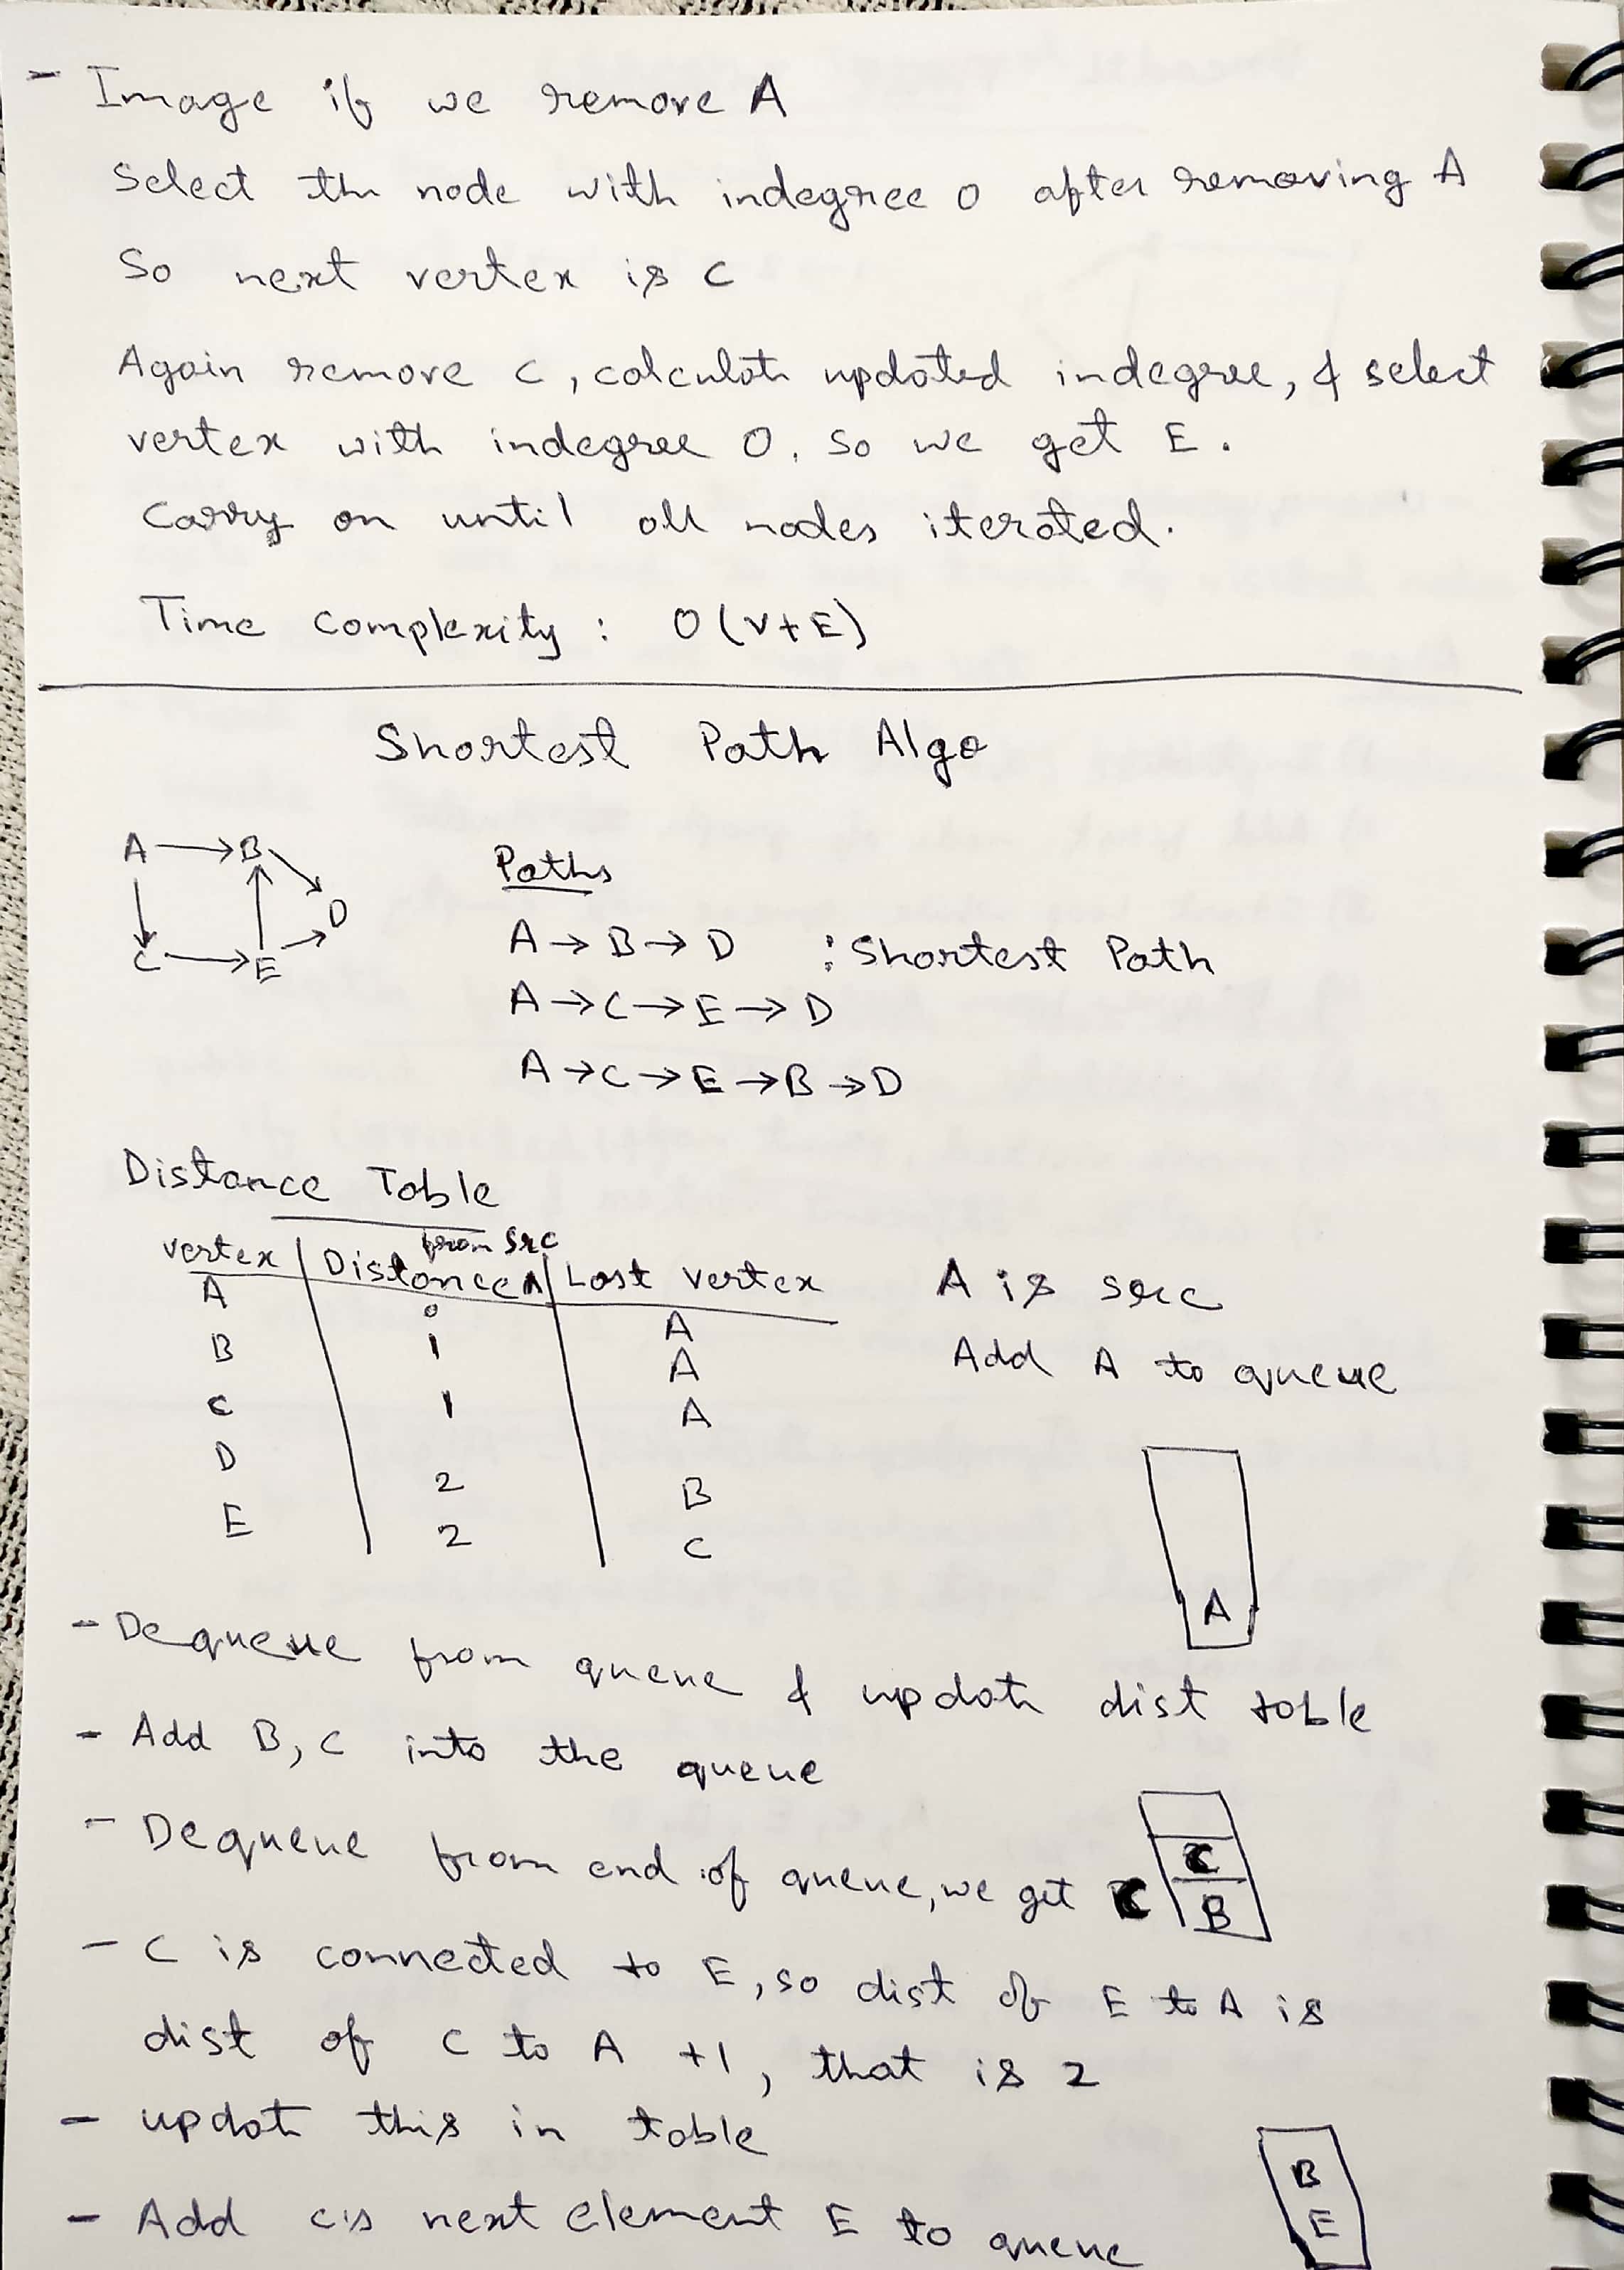 - Image if we remove A
Select the node with indegree 0 after removing A
So next vertex is C
Again remove C, calculate updated indegree, & select
vertex with indegree 0. So we get E.
Carry on until all nodes iterated.
Time Complexity : O(V+E)
Shortest Path Algo
A → B
D
C → E
Paths
A → B → D : Shortest Path
A → C → E → D
A → C → E → B → D
Distance Table
from src
Vertex Distance ∧ Last Vertex
A 0 A
B 1 A
C 1 A
D 2 B
E 2 C
A is src
Add A to queue
A
- Dequeue from queue & update dist table
- Add B, C into the queue
- Dequeue from end of queue, we get C
C
B
- C is connected to E, so dist of E to A is
dist of C to A +1, that is 2
- update this in table
- Add C's next element E to queue
B
E